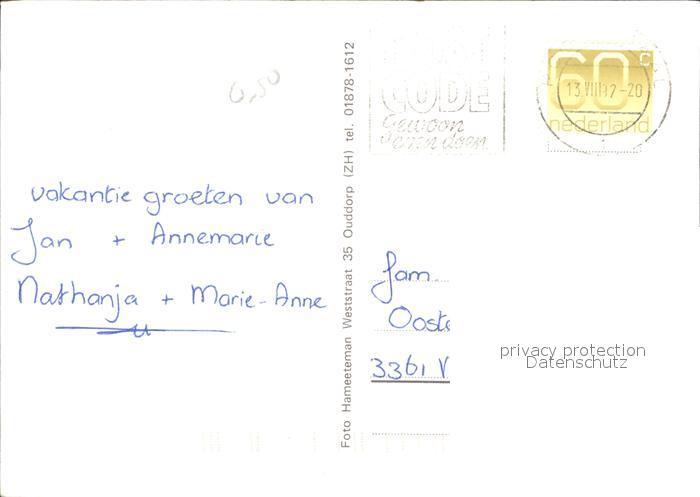 0,50
vakantie groeten van
Jan + Annemarie
Nathanja + Marie-Anne
Foto Hameeteman Weststraat 35 Ouddorp (ZH) tel. 01878-1612
POST
CODE
Gewoon
even doen.
60 c
nederland
fam.
Ooste
3361 V
privacy protection
Datenschutz